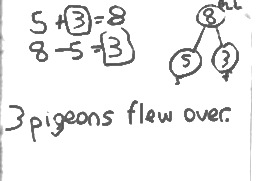 5 + 3 = 8
8 - 5 = 3
8
5 3
3 pigeons flew over.